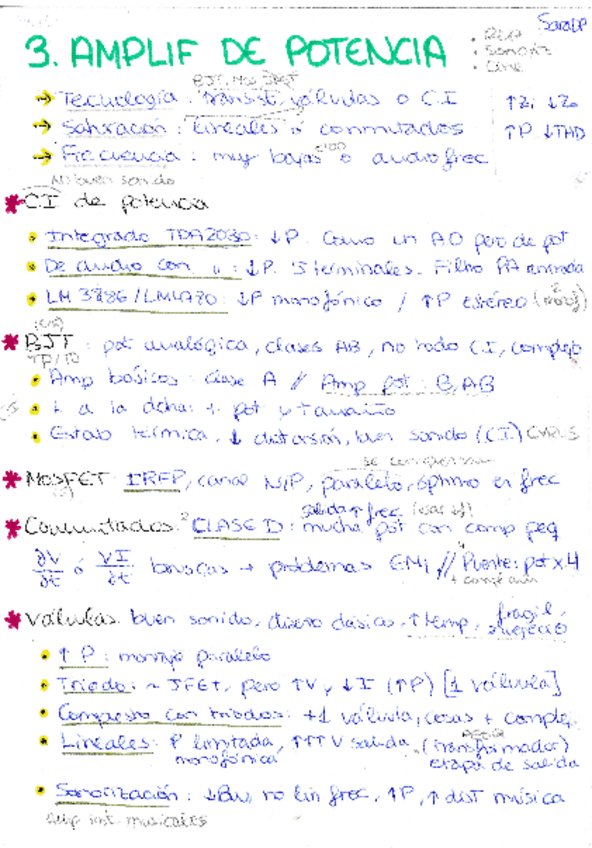 SaraDP
3. AMPLIF DE POTENCIA
• Sonoriz
• Cine
BJT, Mos, JFET
→ Tecnología: transist, válvulas o C.I
↑Zi ↓Zo
→ Saturación: lineales o conmutados
↑P ↓THD
→ Frecuencia: muy bajas o audiofrec
No buen sonido
* C.I de potencia
• Integrado TDA2030: ↓P. Como un AO pero de pot
• De audio con ": ↓P. 5 terminales. Filtro PA entrada
• LM 3886 / LM4770: ↓P monofónico / ↑P estéreo
* BJT: pot analógica, clases AB, no todo C.I, complejo
• Amp básicos: clase A // Amp pot: B, AB
• + a la dcha: + pot y tamaño
• Estab térmica, ↓ distorsión, buen sonido (C.I)
se compensan
* MOSFET: IRFP, canal N/P, paralelo, óptimo en frec
salida ↑ frec
* Conmutados: CLASE D: mucha pot con comp peq
∂V/∂t ó VI/∂t bruscas → problemas EMI // Puente: pot x4
* Válvulas: buen sonido, diseño clásico, ↑temp, frágil, envejeció
• ↑ P: montaje paralelo
• Triodo: ~ JFET, pero ↑V y ↓I (↑P) [1 válvula]
• Compuesto con triodos: +1 válvula, cosas + complej.
• Lineales: P limitada, ↑↑↑ V salida (transformador)
monofónica etapa de salida
• Sonorización: ↓Bw, no lin frec, ↑P, ↑ dist música
amp inst musicales